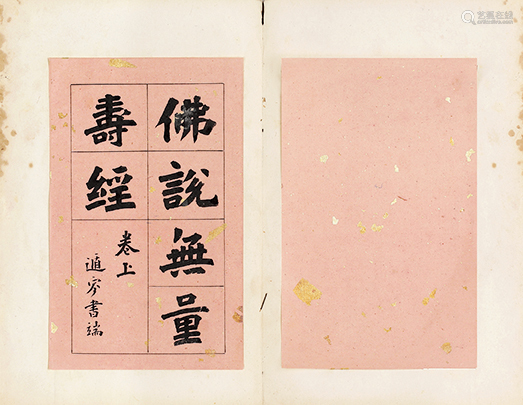 佛說無量
壽經
卷上
遁穸書端
艺典在线